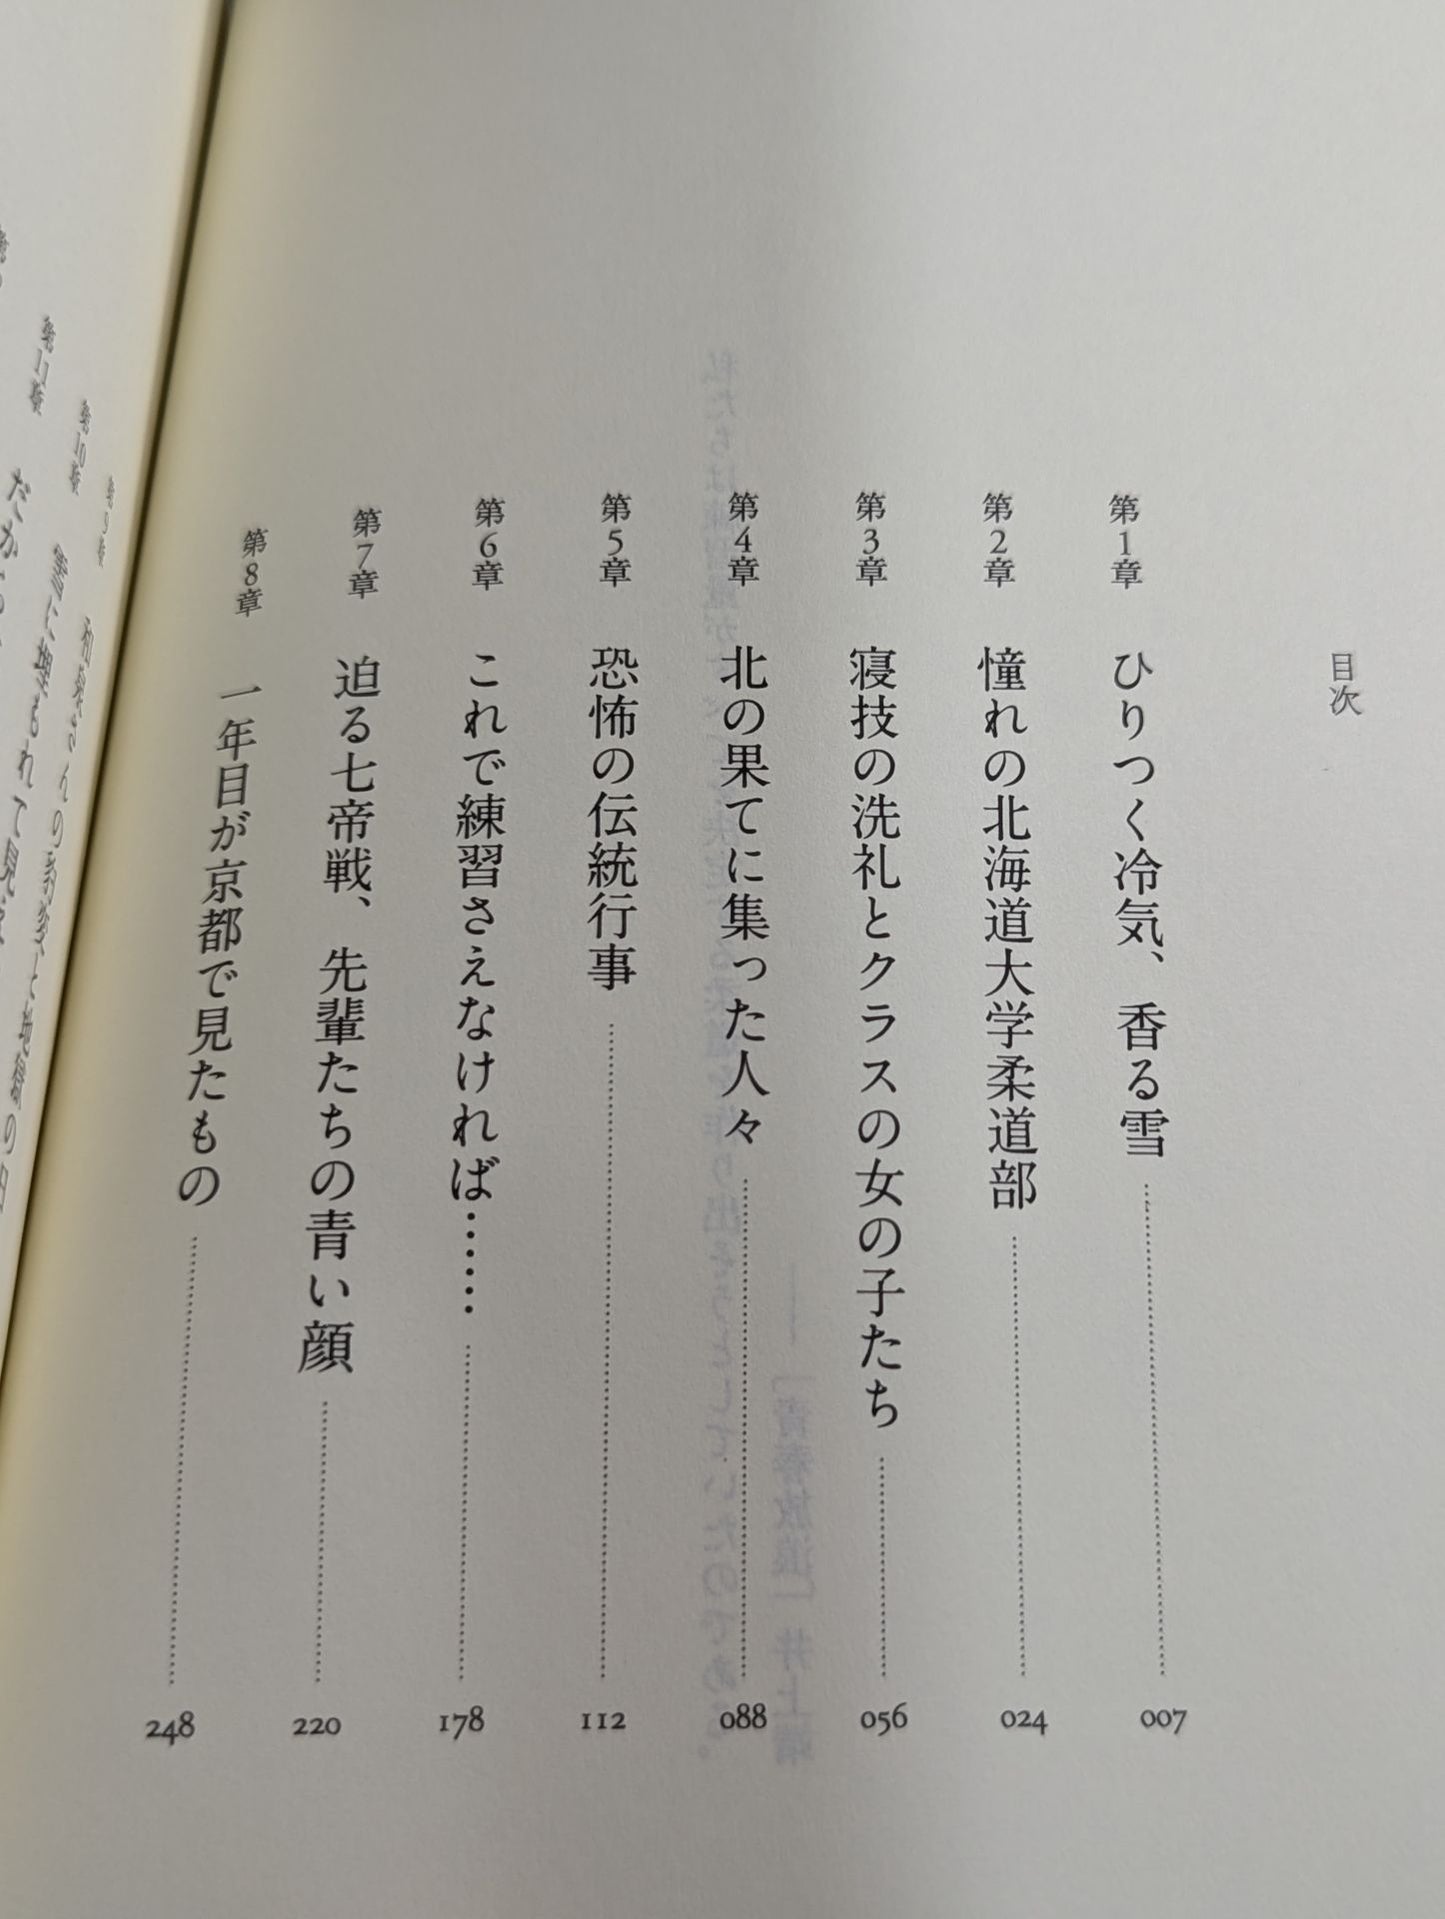 目次
第1章　ひりつく冷気、香る雪 007
第2章　憧れの北海道大学柔道部 024
第3章　寝技の洗礼とクラスの女の子たち 056
第4章　北の果てに集った人々 088
第5章　恐怖の伝統行事 112
第6章　これで練習さえなければ…… 178
第7章　迫る七帝戦、先輩たちの青い顔 220
第8章　一年目が京都で見たもの 248
第9章　和泉さんの豹変と地獄の
第10章　雪に埋もれて見
第11章　だから